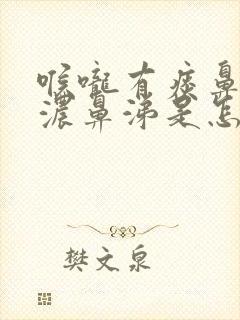 喉咙有痰鼻
浓鼻涕是怎
樊文泉